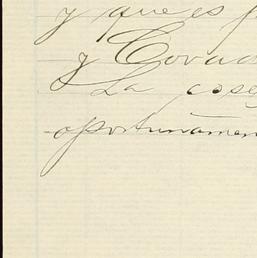 y que es p
y Covad
La cose
oportunamen